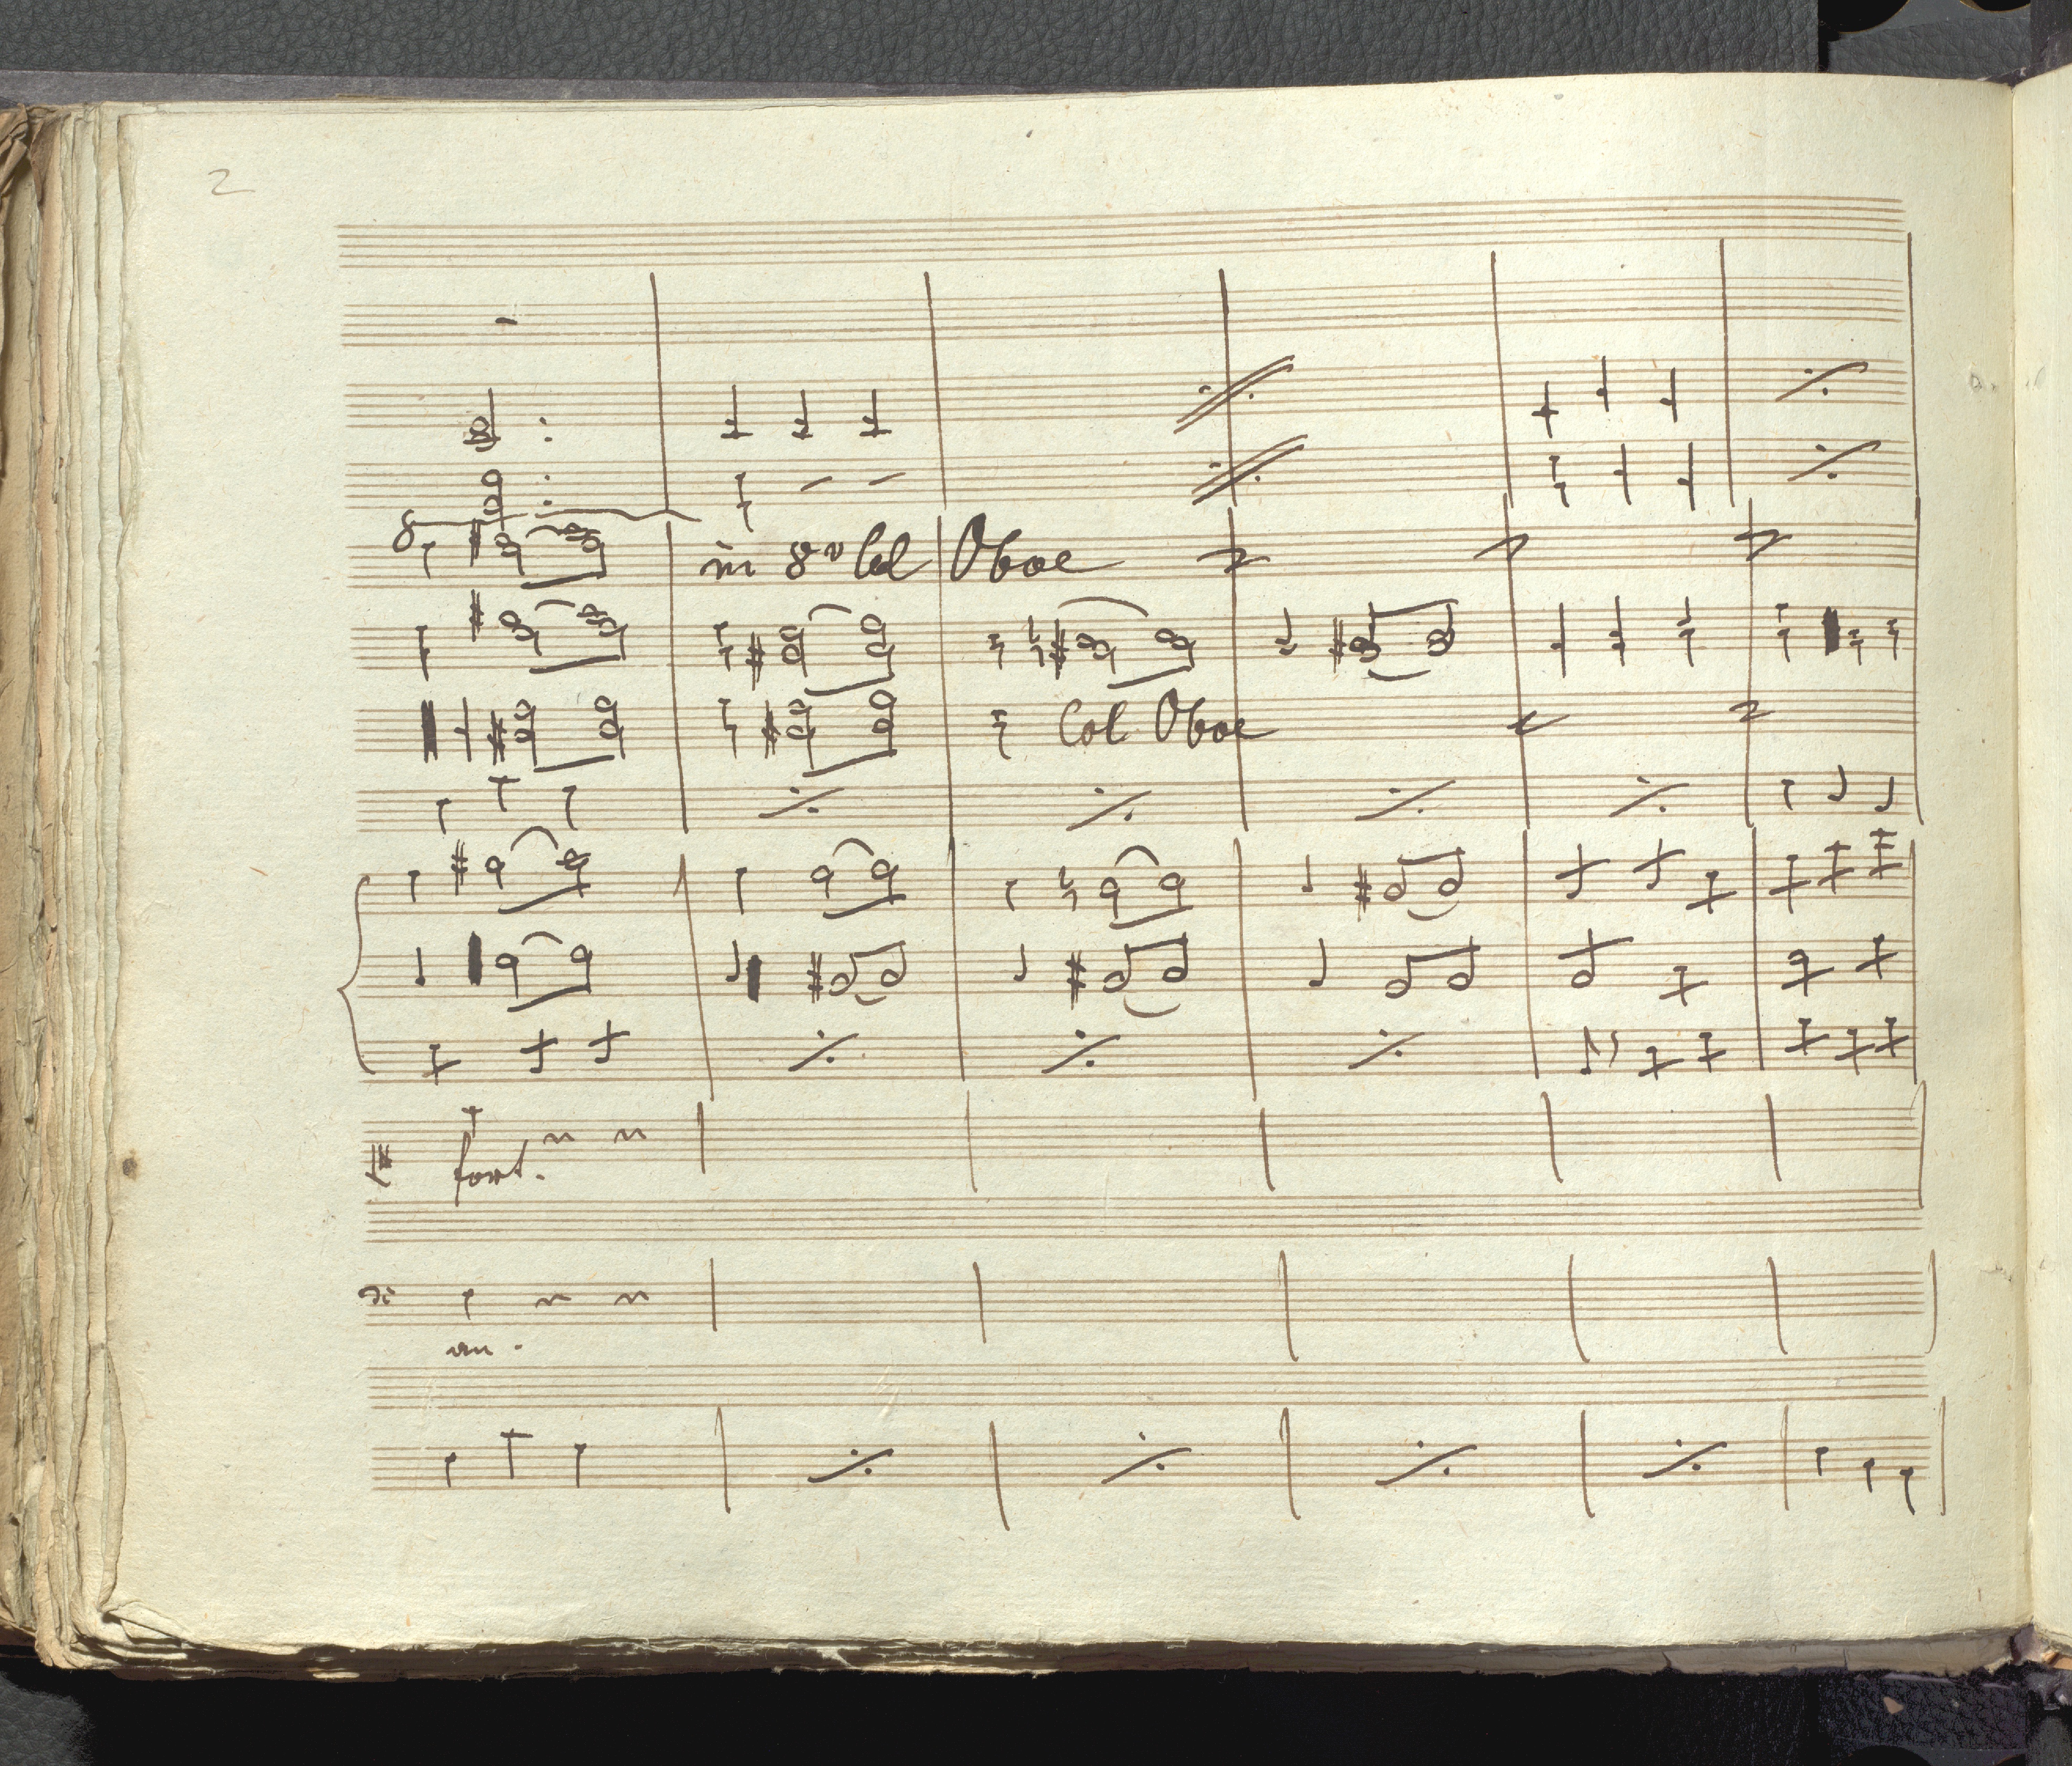 2
8
in 8v Col Oboe
Col Oboe
fort.
an.